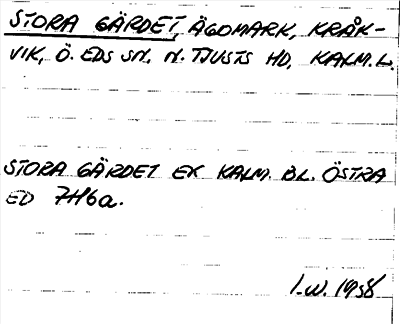 STORA GÄRDET, ÄGOMARK, KRÅK-
VIK, Ö. EDS SN. N. TJUSTS HD, KALM. L.
STORA GÄRDET EK KALM. BL. ÖSTRA
ED 7H6a.
I.W. 1958